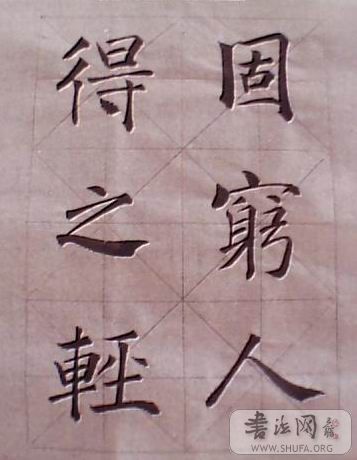 固窮人
得之輕
書法网
WWW.SHUFA.ORG